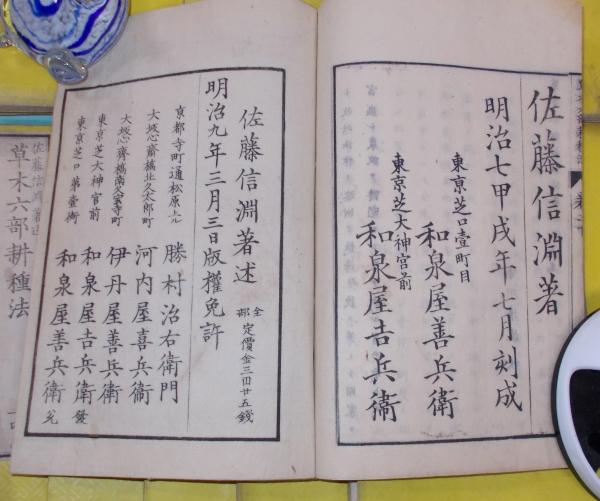 佐藤信淵著
明治七甲戌年七月刻成
東京芝口壹町目
和泉屋善兵衛
東京芝大神宮前
和泉屋吉兵衛
佐藤信淵著述
全部定價金三円廿五銭
明治九年三月三日版權免許
京都寺町通松原上ル
勝村治右衛門
大坂心齋橋北久太郎町
河内屋喜兵衛
大坂心齋橋南久宝寺町
伊丹屋善兵衛
東京芝大神宮前
和泉屋吉兵衛發
東京芝口第壹街
和泉屋善兵衛兌
佐藤信淵著述
草木六部耕種法